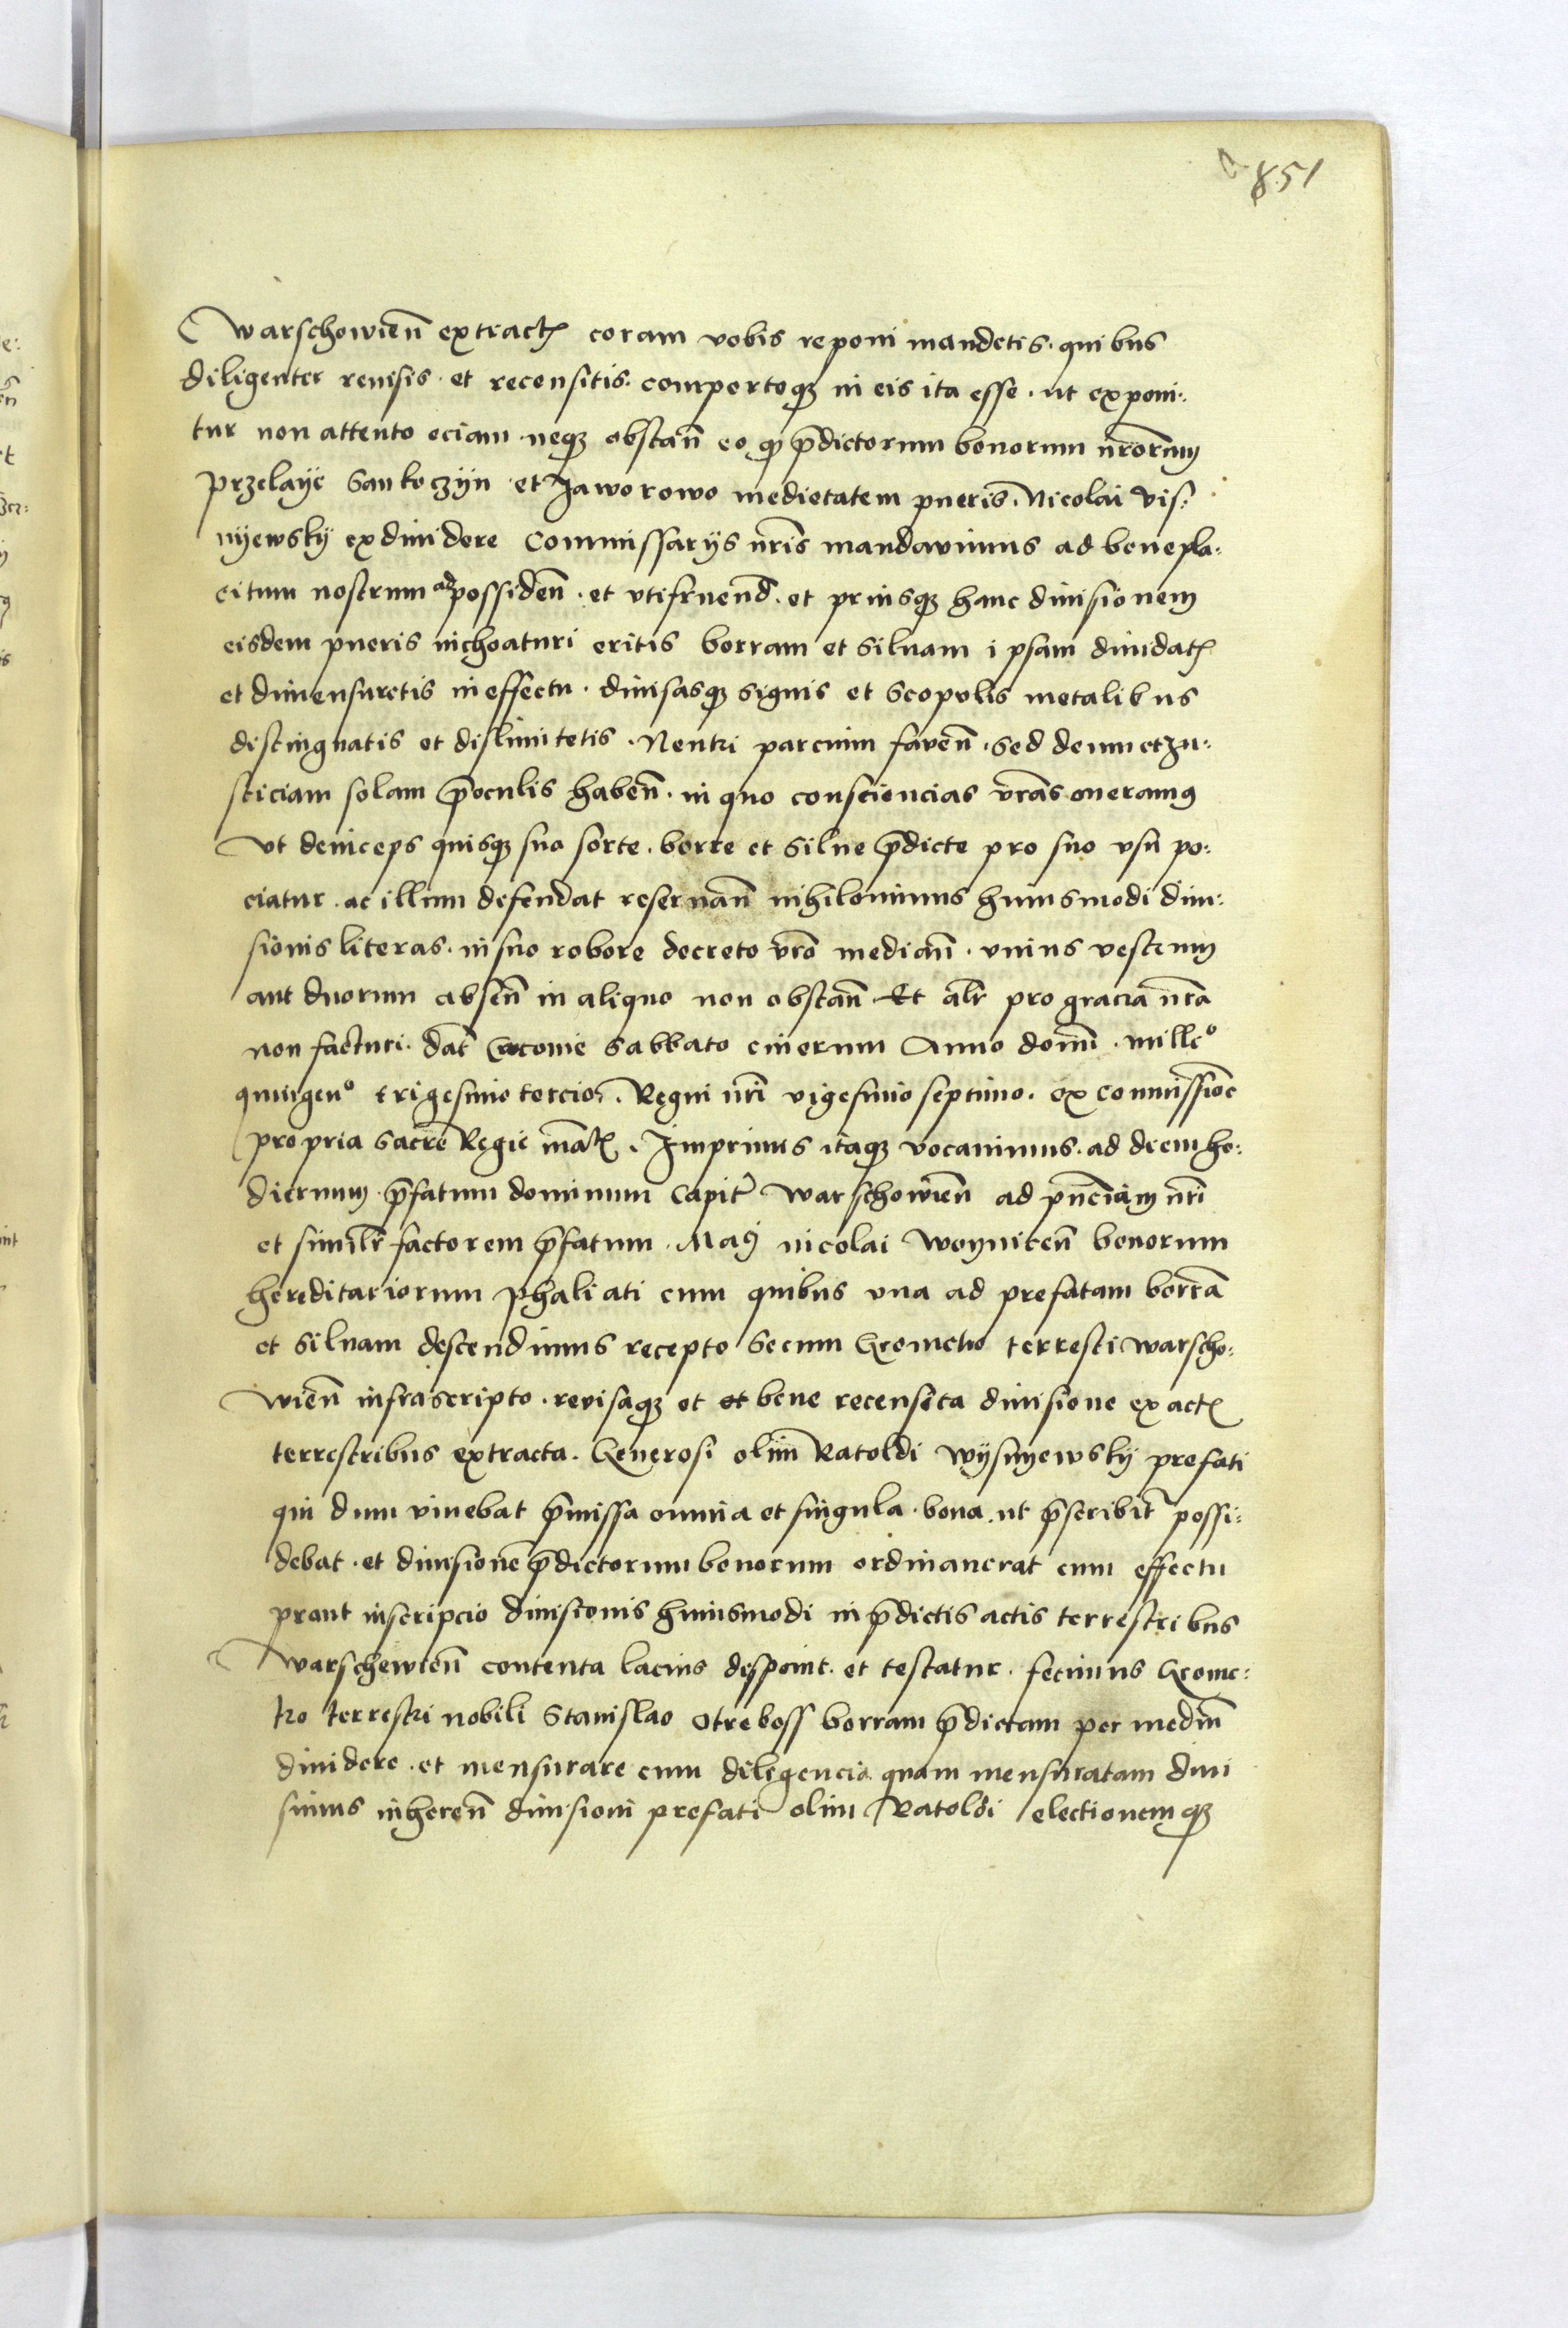 851
warschowien̄ extractꝭ coram vobis reponi mandetis. quibus
diligenter reuisis. et recensitis. compertoqꝫ in eis ita esse. ut exponi:
tur non attento eciam neqꝫ obstan̄ eo qꝫ p̄dictorum bonorum nr̄orum
przelaye Sankoczÿn et Jaworowo medietatem pueris. Nicolai vis:
nÿewskÿ ex diuidere Commissarÿs nr̄is mandauimus ad benepla:
citum nostrum ad possiden̄. et vtifruend̄. et priusqꝫ hanc diuisionem
eisdem pueris inchoaturi eritis borram et siluam ipsam diuidatꝭ
et dimensuretis in effectu. diuisasqꝫ signis et scopulis metalibus
distinguatis et dislimitetis. Neutri parcium faven̄. sed deum et Ju:
sticiam solam p̄ oculis haben̄. in quo consciencias vr̄as oneramus
vt deinceps quisqꝫ sua sorte. borre et silue p̄dicte pro suo vsu po:
ciatur. ac illum defendat reseruan̄ nihilominus huiusmodi diui:
sionis literas. in suo robore decreto vr̄o median̄. vnius vestrum
aut duorum absen̄ in aliquo non obstan̄ Et al̄r pro gracia nr̄a
non facturi. dat̄ Cracouie sabbato cinerum Anno domī. millꝭo
quingenᵒ trigesimo tercio. Regni nr̄i vigesimo septimo. ex commissione
propria sacre Regie mātꝭ. Imprimis itaqꝫ vocauimus. ad diem ho:
diernum p̄fatum dominum Capit̄ warschowien̄ ad pn̄ciam nr̄i
et simil̄r factorem p̄fatum. Maḡ nicolai woynicen̄ bonorum
hereditariorum phaliati cum quibus vna ad prefatam borrā
et siluam descendimus recepto secum Geometro terresti warscho:
wien̄ infrascripto. revisaqꝫ et et bene recensita diuisione ex actꝭ
terrestribus extracta. Generosi olim Ratoldi wÿsnyewskÿ prefati
qui dum viuebat p̄missa omnia et singula bona. ut p̄scribit̄ possi:
debat. et diuisionē p̄dictorum bonorum ordinauerat cum effectu
prout inscripcio diuisionis huiusmodi in p̄dictis actis terrestribus
warschewien̄ contenta lacius disponit. et testatur. fecimus Geome:
tro terrestri nobili Stanislao Otreboss borram p̄dictam per mediū
diuidere. et mensurare cum diligencia quam mensuratam diui
simus inheren̄ diuisioni prefati olim Ratoldi electionemqꝫ